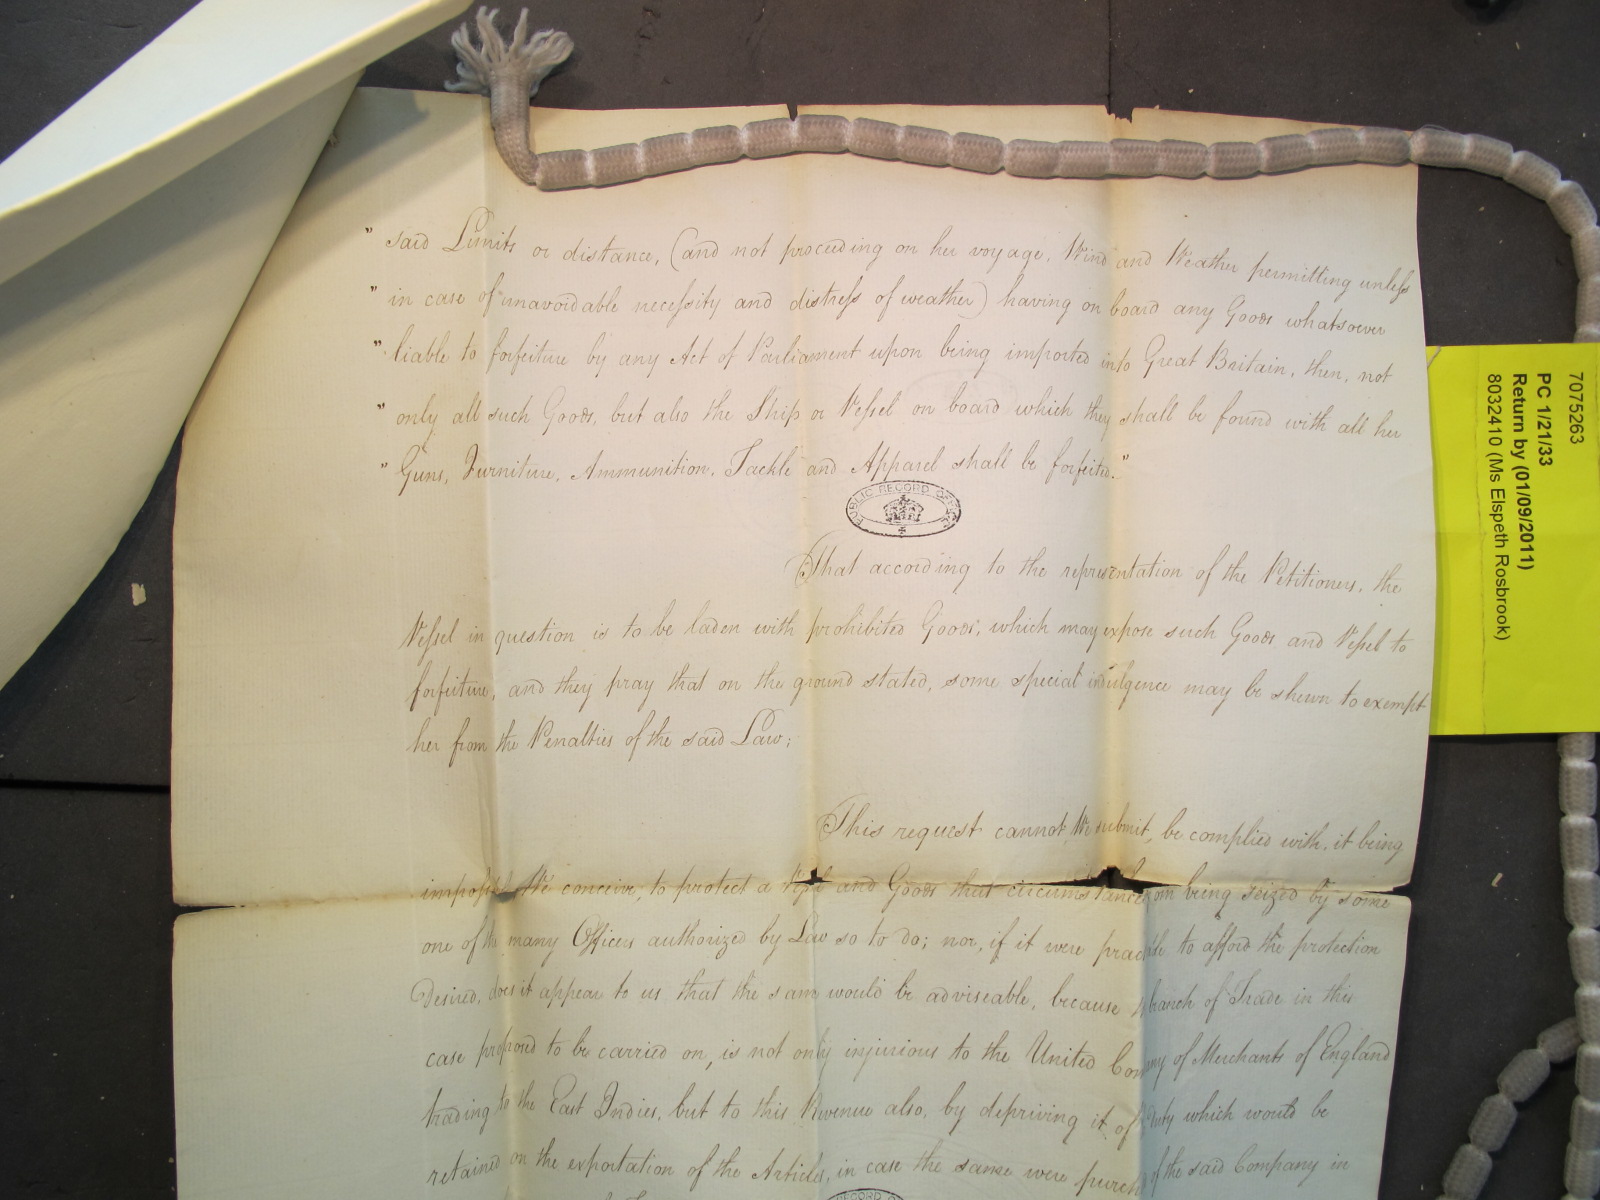 " said Limits or distance, (and not proceeding on her voyage, Wind and Weather permitting unless
" in case of unavoidable necessity and distress of weather) having on board any Goods whatsoever
" liable to forfeiture by any Act of Parliament upon being imported into Great Britain, then, not
" only all such Goods, but also the Ship or Vessel on board which they shall be found with all her
" Guns, Furniture, Ammunition, Tackle and Apparel shall be forfeited."
PUBLIC RECORD OFFICE
That according to the representation of the Petitioners, the
Vessel in question is to be laden with prohibited Goods, which may expose such Goods and Vessel to
forfeiture, and they pray that on the ground stated, some special indulgence may be shewn to exempt
her from the Penalties of the said Law;
This request cannot, We submit, be complied with, it being
We conceive, to protect a Vessel and Goods that being seized by some
one of the many Officers authorized by Law so to do; nor, if it were to afford the protection
desired, does it appear to us that the same would be adviseable, because branch of Trade in this
case proposed to be carried on, is not only injurious to the United of Merchants of England
trading to the East Indies, but to this Revenue also, by depriving it of Duty which would be
retained on the exportation of the Articles, in case the same were of the said Company in
RECORD
7075263
PC 1/21/33
Return by (01/09/2011)
8032410 (Ms Elspeth Rosbrook)